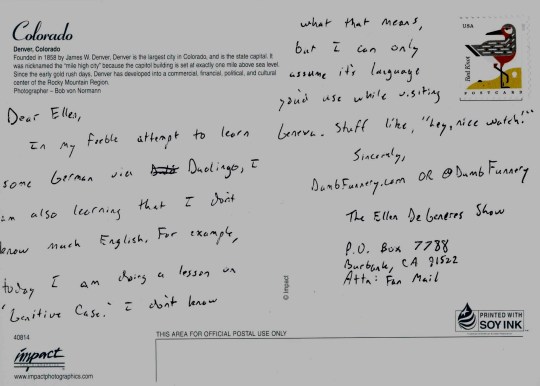 Colorado
Denver, Colorado
Founded in 1858 by James W. Denver, Denver is the largest city in Colorado, and is the state capital. It
was nicknamed the "mile high city" because the capitol building is set at exactly one mile above sea level.
Since the early gold rush days, Denver has developed into a commercial, financial, political, and cultural
center of the Rocky Mountain Region.
Photographer – Bob von Normann
Dear Ellen,
In my feeble attempt to learn
some German via Duolingo, I
am also learning that I don't
know much English. For example,
today I am doing a lesson on
"Genitive Case." I don't know
what that means,
but I can only
assume it's language
you'd use while visiting
Geneva. Stuff like, "Hey, nice watch!"
Sincerely,
DumbFunnery.com OR @DumbFunnery
USA
Red Knot
POSTCARD
The Ellen DeGeneres Show
P.O. Box 7788
Burbank, CA 91522
Attn: Fan Mail
© Impact
PRINTED WITH
SOY INK
THIS AREA FOR OFFICIAL POSTAL USE ONLY
40814
impact
impactphotographics.com